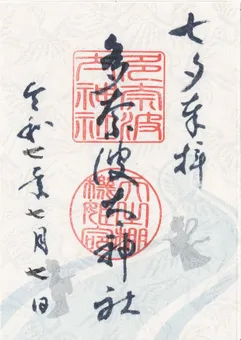 七夕奉拝
多奈波太神社
令和七年七月七日
多奈波
太神社